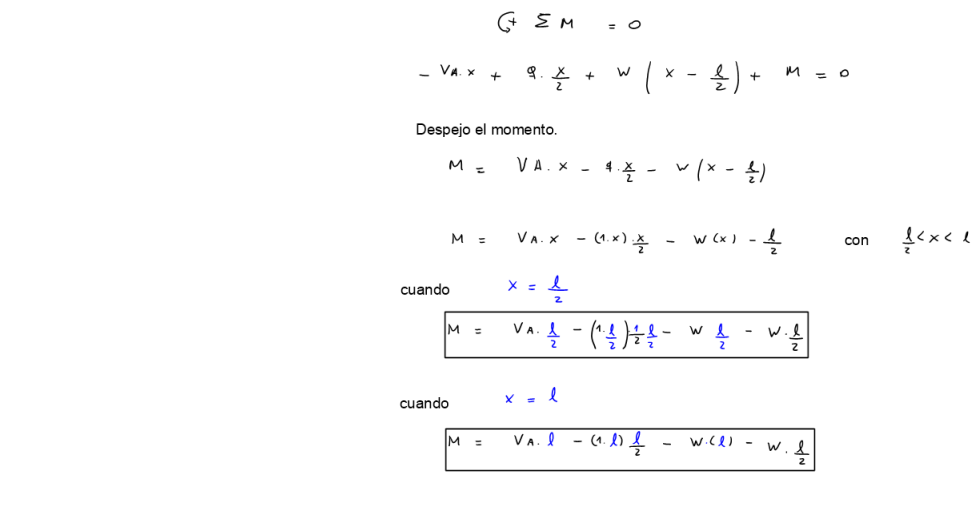 ↻+ Σ M = 0
- VA.x + q. x/2 + W ( x - l/2 ) + M = 0
Despejo el momento.
M = VA.x - q.x/2 - W ( x - l/2 )
M = VA.x - (1.x).x/2 - W(x) - l/2 con l/2 < x < l
cuando x = l/2
M = VA. l/2 - (1.l/2) 1/2 l/2 - W l/2 - W. l/2
cuando x = l
M = VA. l - (1.l) l/2 - W.(l) - W. l/2